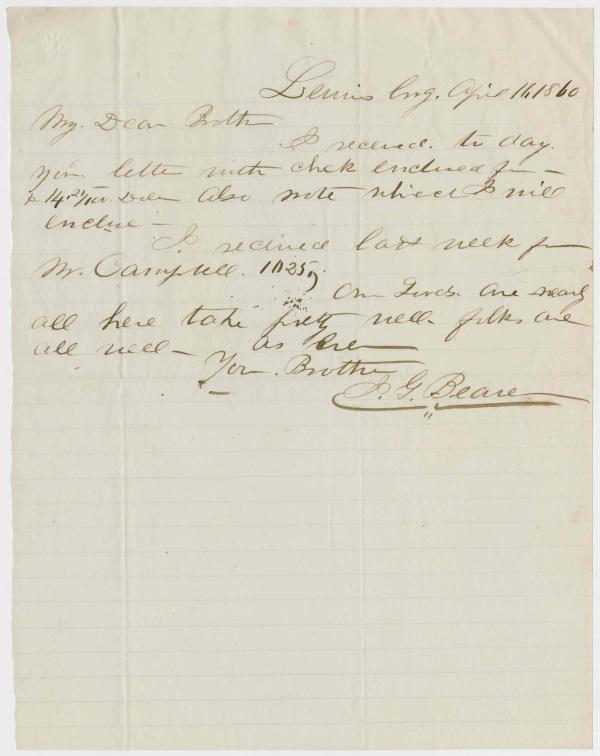 Lewisburg. April 16, 1860
My. Dear Brother
I received. to day.
your letter with chek enclosed for —
$ 14.21/100. also note which I will
enclose —
I recieved last week from
Mr. Campbell. 1025
Our Goods. are nearly
all here take pretty well folks are
all well — as ever
Your. Brother
J. G. Beare